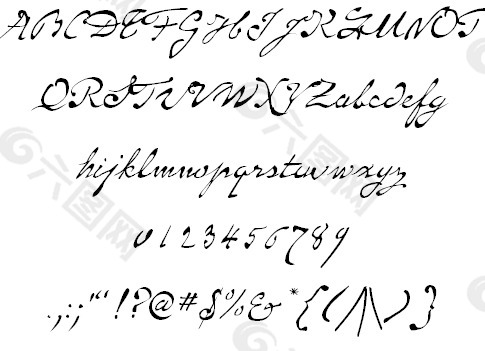 ABCDEFGHIJKLMNOP
QRSTUVWXYZabcdefg
hijklmnopqrstuvwxyz
0123456789
.,:;"'!?@#$%&*{(/|\)}
六图网